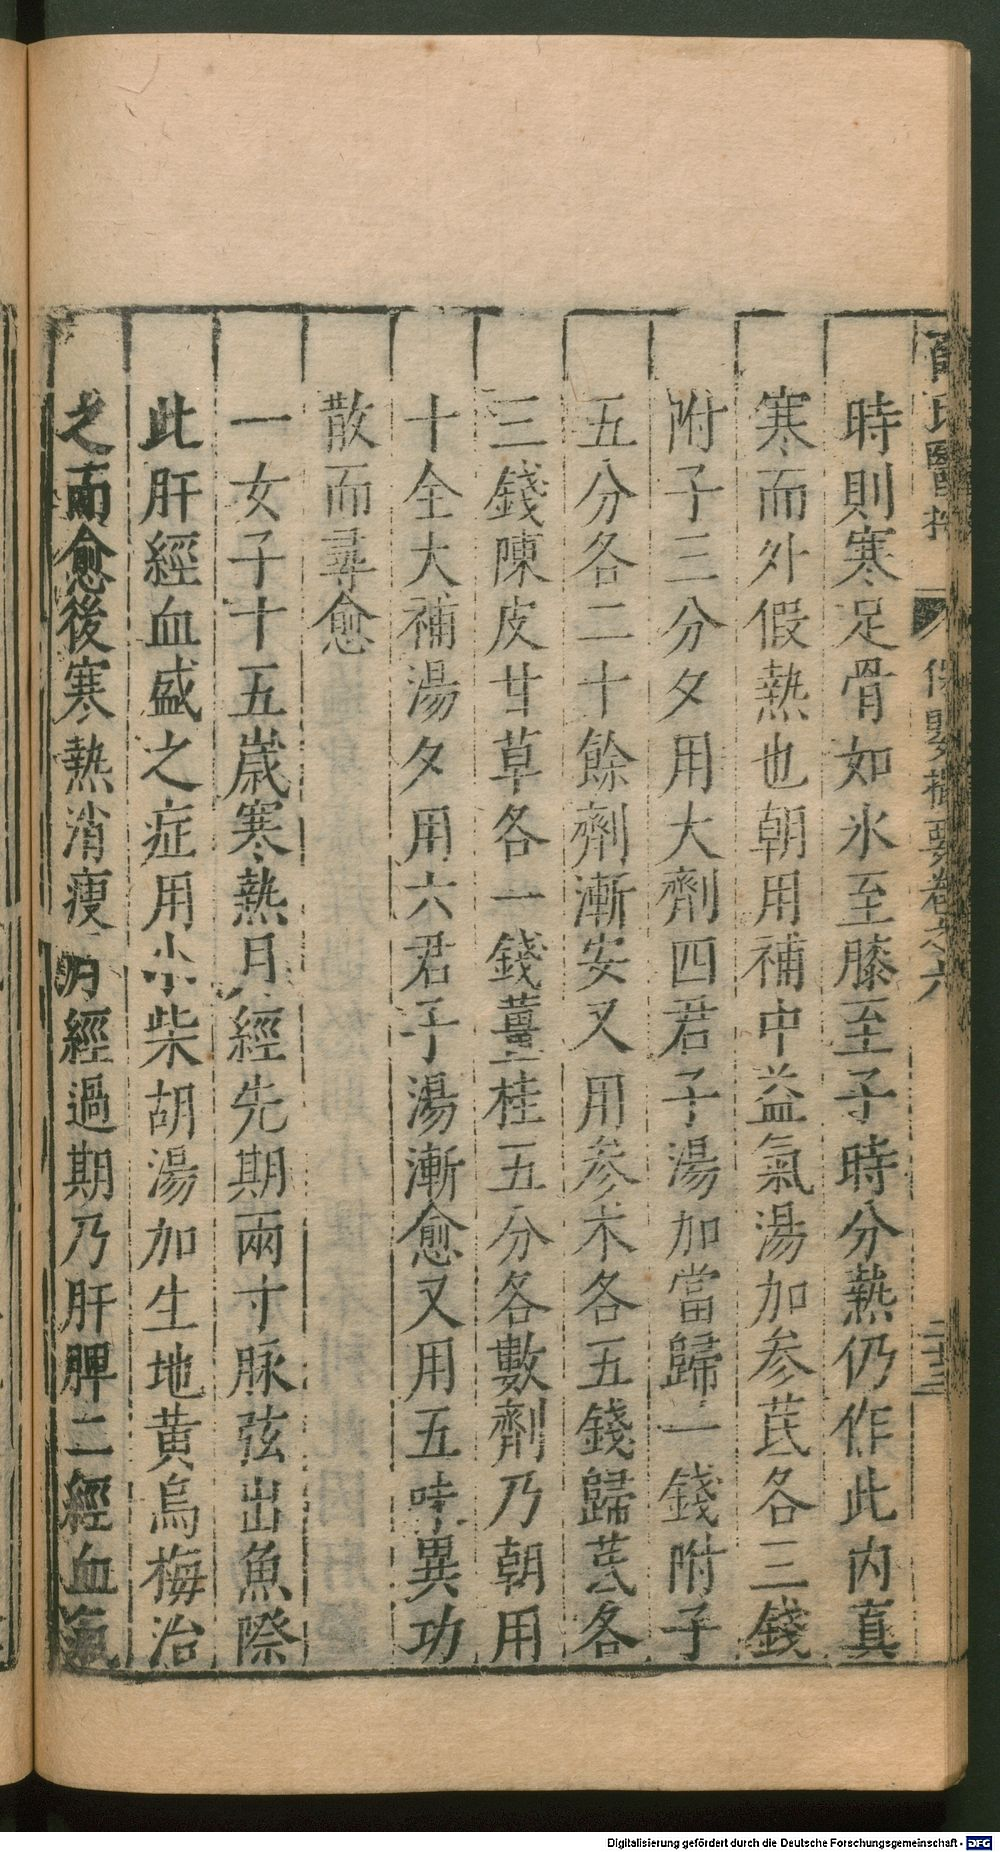 薛氏醫按 保嬰撮要卷之六 二十三
時則寒足骨如氷至膝至子時分熱仍作此内真
寒而外假熱也朝用補中益氣湯加參芪各三錢
附子三分夕用大劑四君子湯加當歸一錢附子
五分各二十餘劑漸安又用參朮各五錢歸芪各
三錢陳皮甘草各一錢薑桂五分各數劑乃朝用
十全大補湯夕用六君子湯漸愈又用五味異功
散而尋愈
一女子十五歲寒熱月經先期兩寸脉弦出魚際
此肝經血盛之症用小柴胡湯加生地黄烏梅治
之而愈後寒熱消瘦月經過期乃肝脾二經血氣
Digitalisierung gefördert durch die Deutsche Forschungsgemeinschaft - DFG